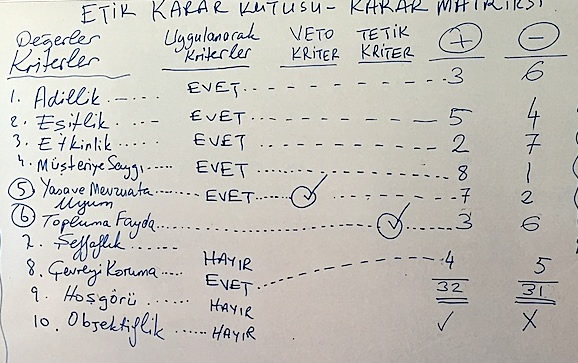 ETİK KARAR KUTUSU - KARAR MATRİKSİ
Değerler Kriterler Uygulanacak Kriterler VETO KRİTER TETİK KRİTER + -
1. Adillik EVET 3 6
2. Eşitlik EVET 5 4
3. Etkinlik EVET 2 7
4. Müşteriye Saygı EVET 8 1
5 Yasa ve Mevzuata Uyum EVET ✓ 7 2
6 Topluma Fayda ✓ 3 6
7. Şeffaflık HAYIR
8. Çevreyi Koruma EVET 4 5
9. Hoşgörü HAYIR 32 31
10. Objektiflik HAYIR ✓ X